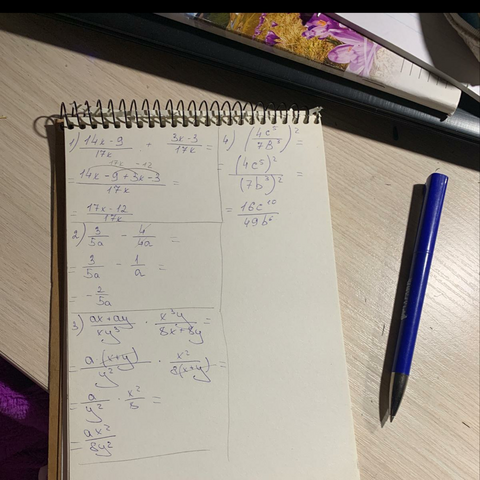 1) (14k-9)/17k + (3k-3)/17k =
17k -12
= (14k-9+3k-3)/17k =
= (17k-12)/17k
2) 3/5a - 4/4a =
= 3/5a - 1/a =
= - 2/5a
3) (ax+ay)/xy³ · x³y/(8x+8y) =
= a(x+y)/y² · x²/8(x+y) =
= a/y² · x²/8 =
= ax²/8y²
4) (4c⁵/7b³)² =
= (4c⁵)²/(7b³)² =
= 16c¹⁰/49b⁶